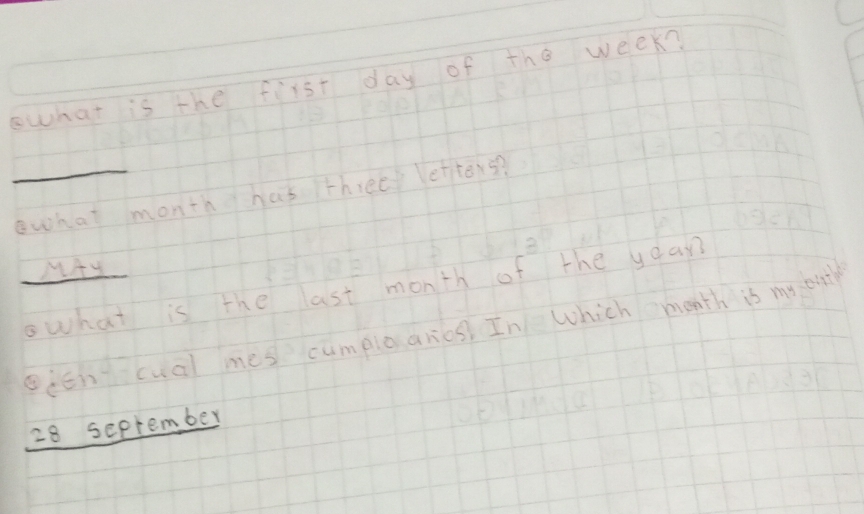 what is the first day of the week?
what month has three letters?
MAY
what is the last month of the year?
¿En cual mes cumplo años? In which month is my
28 september